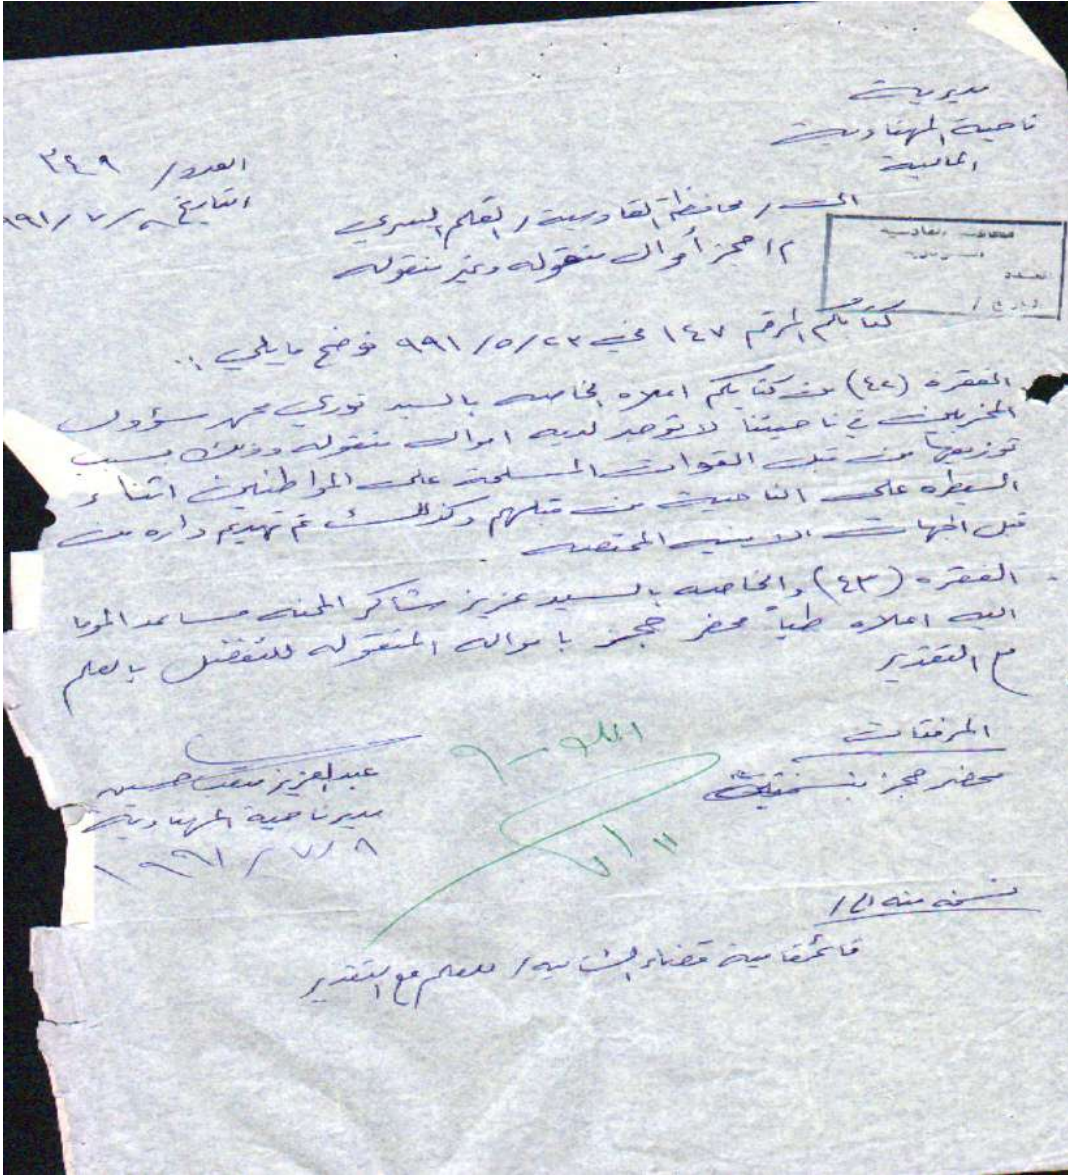 مديرية
ناحية المهناوية
المالية
العدد / ٣٤٩
التاريخ ٨ / ٧ / ٩٩١
الى / محافظة القادسية / القلم السري
م / حجز أموال منقوله وغير منقوله
كتابكم المرقم ١٤٧ في ٢٣ / ٥ / ٩٩١ نوضح مايلي :.
الفقره (٤٢) من كتابكم اعلاه الخاصه بالسيد نوري محمد مسؤول
المخربين في ناحيتنا لا توجد لديه اموال منقوله وذلك بسبب
توزيعها من قبل القوات المسلحة على المواطنين اثناء
السيطره على الناحية من قبلهم وكذلك تم تهديم داره من
قبل الجهات الامنيه المختصه
الفقره (٤٣) والخاصه بالسيد عزيز شاكر المحنه مساعد الموما
اليه اعلاه طياً محضر حجز بامواله المنقوله للتفضل بالعلم
مع التقدير
المرفقات
محضر حجز بنسختين
عبدالعزيز حسين
مدير ناحية المهناوية
٨ / ٧ / ١٩٩١
١١ / ٧
نسخه منه الى /
قائمقامية قضاء الشاميه / للعلم مع التقدير